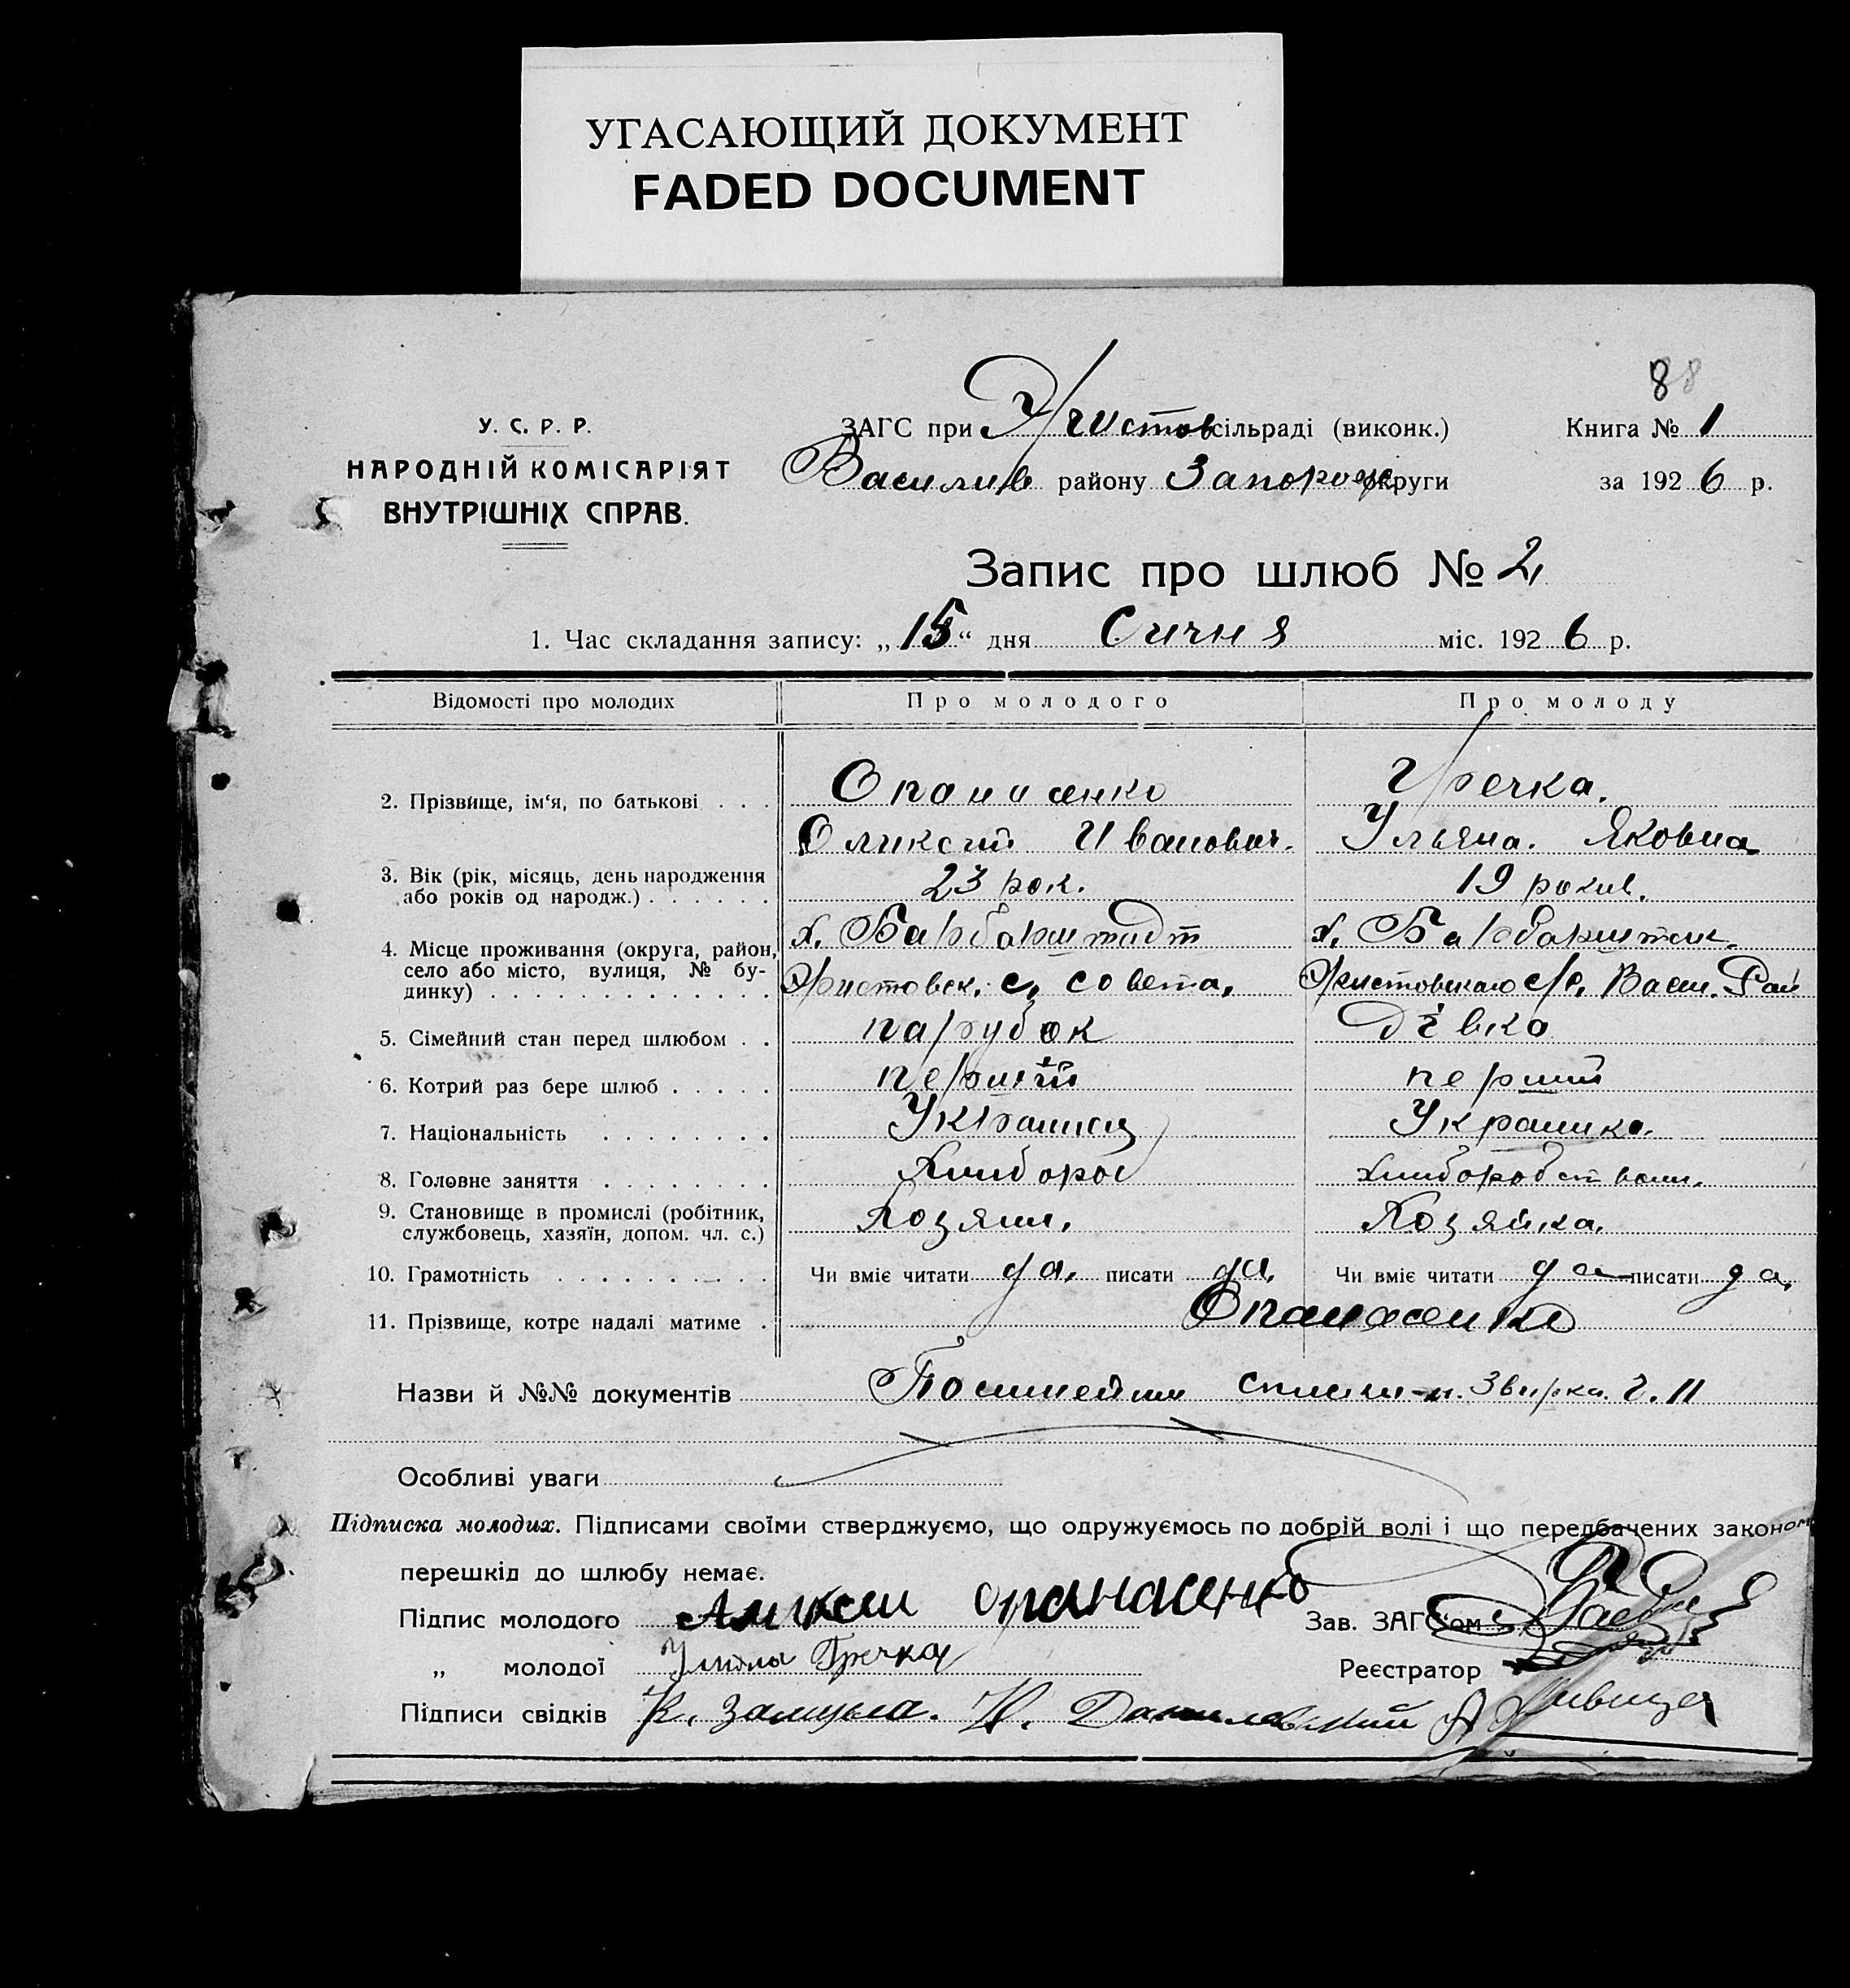 УГАСАЮЩИЙ ДОКУМЕНТ
FADED DOCUMENT
88
У. С. Р. Р.
НАРОДНІЙ КОМІСАРІЯТ
ВНУТРІШНІХ СПРАВ.
ЗАГС при Христов сільраді (виконк.)
Василив району Запорож округи
Книга № 1
за 1926 р.
Запис про шлюб № 2
1. Час складання запису: „15“ дня Сичня міс. 1926 р.
Відомості про молодих Про молодого Про молоду
2. Прізвище, ім‘я, по батькові . . . Опанасенко Гречка.
Оликсий Иванович. Ульяна. Яковна
3. Вік (рік, місяць, день народження
або років од народж.) . . . . . . 23 рок. 19 рокив.
4. Місце проживання (округа, район, х. Барбарштадт х.
село або місто, вулиця, № бу-
динку) . . . . . . . . . . . . . Христовск. с, совета, Христовскаго с/с, Васил. Рай
5. Сімейний стан перед шлюбом . . парубок дівка
6. Котрий раз бере шлюб . . . . . перший перший
7. Національність . . . . . . . . Украинец Украинка.
8. Головне заняття . . . . . . . . Хлибороб
9. Становище в промислі (робітник,
службовець, хазяїн, допом. чл. с.) Хозяин. Хозяйка.
10. Грамотність . . . . . . . . . . Чи вміє читати да, писати да, Чи вміє читати да писати да,
11. Прізвище, котре надалі матиме . Опанасенко
Назви й №№ документів
Особливі уваги
Підписка молодих. Підписами своїми стверджуємо, що одружуємось по добрій волі і що передбачених законом
перешкід до шлюбу немає.
Підпис молодого Опанасенко Зав. ЗАГС‘ом
„ молодої Гречка Реєстратор
Підписи свідків К. Н. Даниловский